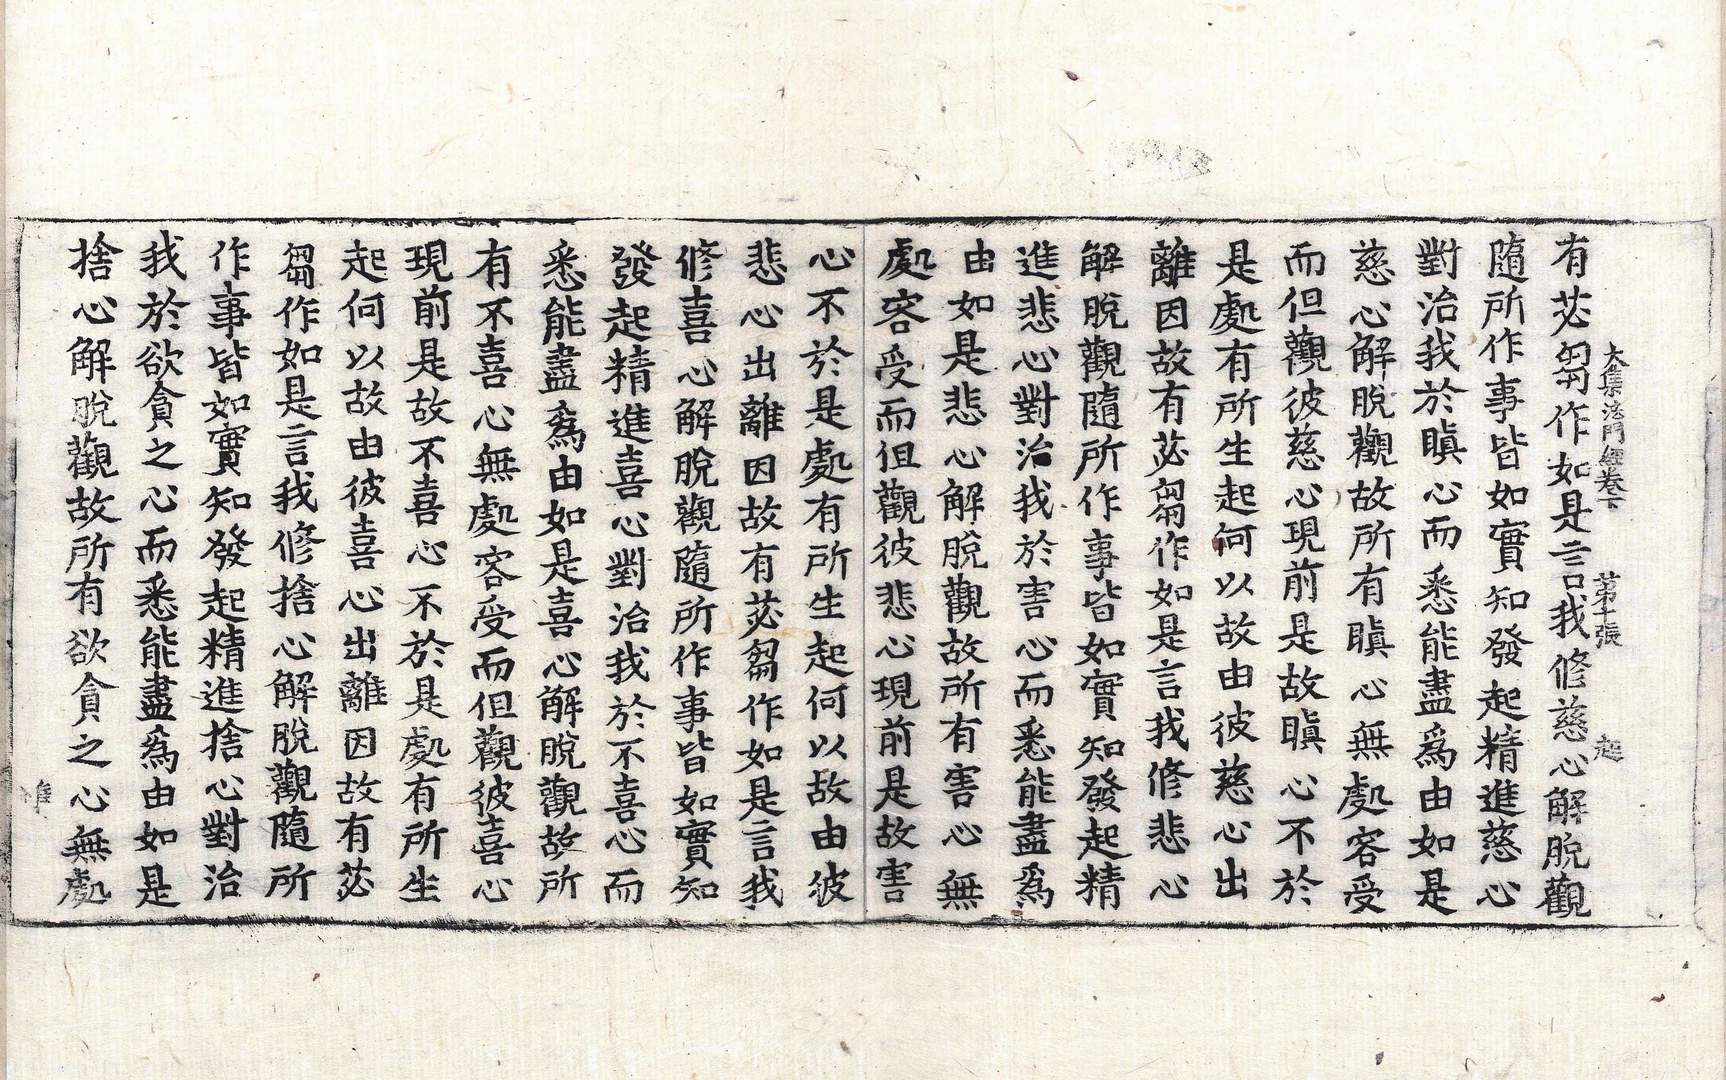 大集法門經卷下 第十張 起
有苾芻作如是言我修慈心解脫觀
隨所作事皆如實知發起精進慈心
對治我於瞋心而悉能盡爲由如是
慈心解脫觀故所有瞋心無處容受
而但觀彼慈心現前是故瞋心不於
是處有所生起何以故由彼慈心出
離因故有苾芻作如是言我修悲心
解脫觀隨所作事皆如實知發起精
進悲心對治我於害心而悉能盡爲
由如是悲心解脫觀故所有害心無
處容受而但觀彼悲心現前是故害
心不於是處有所生起何以故由彼
悲心出離因故有苾芻作如是言我
修喜心解脫觀隨所作事皆如實知
發起精進喜心對治我於不喜心而
悉能盡爲由如是喜心解脫觀故所
有不喜心無處容受而但觀彼喜心
現前是故不喜心不於是處有所生
起何以故由彼喜心出離因故有苾
芻作如是言我修捨心解脫觀隨所
作事皆如實知發起精進捨心對治
我於欲貪之心而悉能盡爲由如是
捨心解脫觀故所有欲貪之心無處